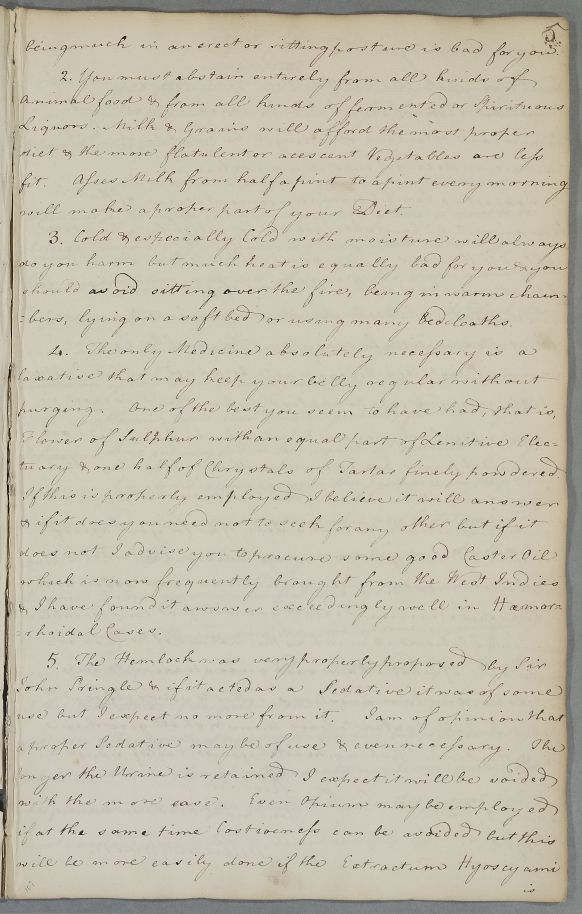 5
being much in an erect or sitting posture is bad for you.
2. You must abstain entirely from all kinds of
Animal food & from all kinds of fermented or Spirituous
Liquors. Milk & Grains will afford the most proper
diet & the more flatulent or acescent Vegetables are less
fit. Asses Milk from half a pint to a pint every morning
will make a proper part of your Diet.
3. Cold & especially Cold with moisture will always
do you harm but much heat is equally bad for you & you
should avoid sitting over the fire, being in warm cham=
=bers, lying on a soft bed or using many bed-cloaths.
4. The only Medicine absolutely necessary is a
laxative that may keep your belly regular without
purging. One of the best you seem to have had, that is,
Flower of Sulphur with an equal part of Lenitive Elec=
tuary & one half of Chrystals of Tartar finely powdered
If this is properly employed I believe it will answer
& if it does you need not to seek for any other but if it
does not I advise you to procure some good Castor Oil
which is now frequently brought from the West Indies
& I have found it answer exceedingly well in Hæmor=
=rhoidal Cases.
5. The Hemlock was very properly proposed by Sir
John Pringle & if it acted as a Sedative it was of some
use but I expect no more from it. I am of opinion that
a proper Sedative may be of use & even necessary. The
longer the Urine is retained I expect it will be voided
with the more ease. Even Opium may be employed
if at the same time Costiveness can be avoided but this
will be more easily done if the Extractum Hyoscyami
is